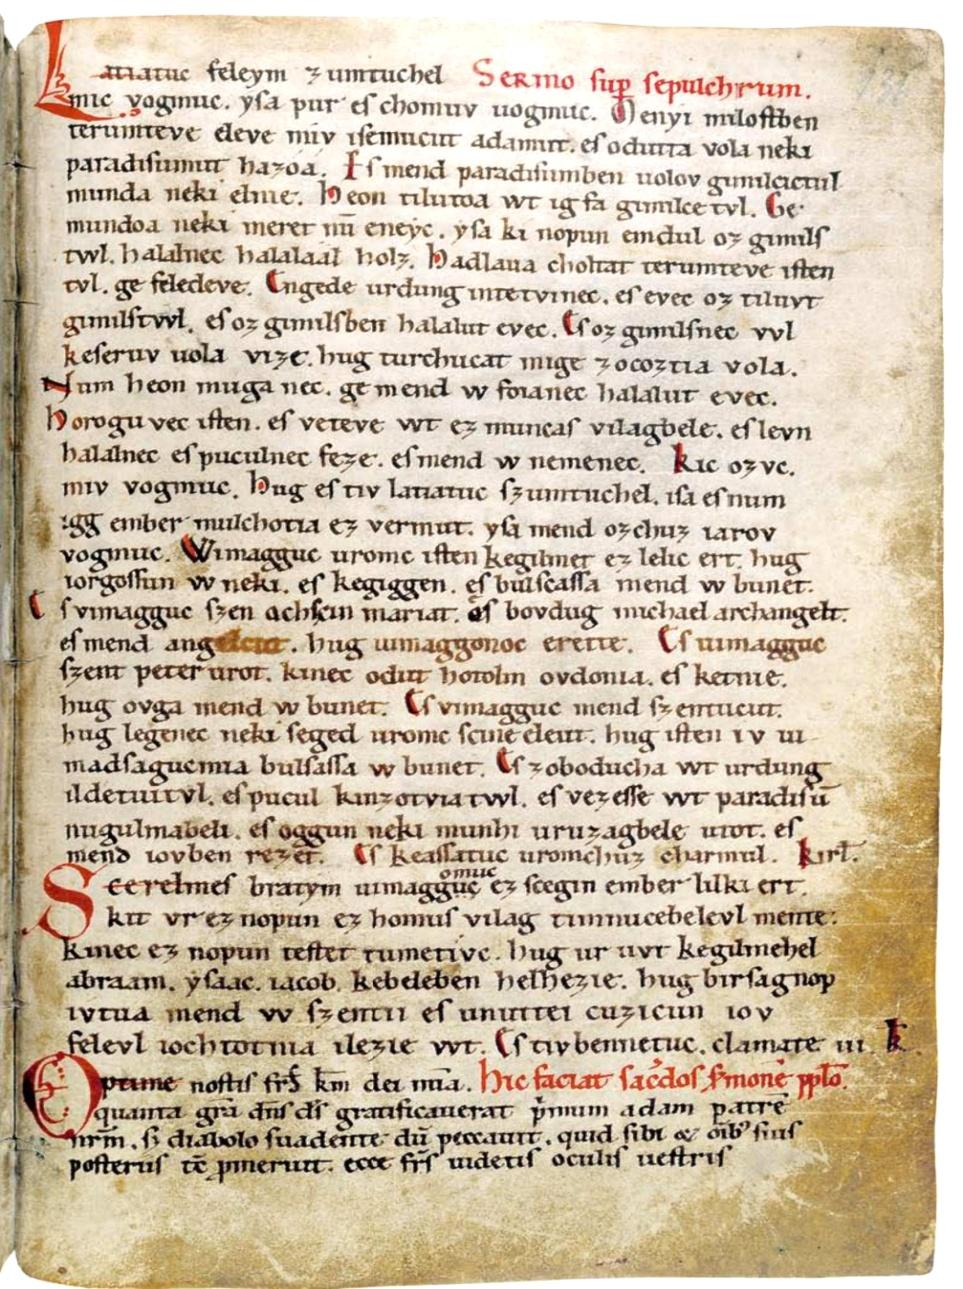 Latiatuc feleym ꝫ zumtuchel Sermo sup sepulchrum.
mic vogmuc. ysa pur es chomuv uogmuc. Menyi milostben
terumteve eleve miv isemucut adamut. es odutta vola neki
paradisumut hazoa. Es mend paradisumben uolov gimilcictul
munda neki elnie. Heon tilutoa wt ig fa gimilce tvl. Ge
mundoa neki meret nū eneyc. ysa ki nopun emdul oz gimils
twl. halalnec halalaal holz. Hadlaua choltat terumteve isten
tvl. ge feledeve. Engede urdung intetvinec. es evec oz tiluvt
gimilstwl. es oz gimilsben halalut evec. Es oz gimilsnec vvl
keseruv uola vize. hug turchucat mige zocoztia vola.
Num heon muga nec. ge mend w foianec halalut evec.
Horogu vec isten. es veteve wt ez muncas vilagbele. es levn
halalnec es puculnec feze. es mend w nemenec. Kic ozvc.
miv vogmuc. Hug es tiv latiatuc szumtuchel. isa es num
igg ember mulchotia ez vermut. ysa mend ozchuz iarov
vogmuc. Wimagguc uromc isten kegilmet ez lelic ert. hug
iorgossun w neki. es kegiggen. es bulscassa mend w bunet.
Es vimagguc szen achscin mariat. es bovdug michael archangelt.
es mend angelcut. hug uimaggonoc erette. Es uimagguc
szent peter urot. kinec odut hotolm ovdonia. es ketnie.
hug ovga mend w bunet. Es vimagguc mend szentucut.
hug legenec neki seged uromc scine eleut. hug isten iv ui
madsagucmia bulsassa w bunet. Es zoboducha wt urdung
ildetuitvl. es pucul kinzotviatwl. es vezesse wt paradisū
nugulmabeli. es oggun neki munhi uruzagbele utot. es
mend iovben rezet. Es keassatuc uromchuz charmul. kirł.
Scerelmes bratym uimagg omuc guc ez scegin ember lilki ert.
kit vr ez nopun ez homus vilag timnucebelevl mente.
kinec ez nopun testet tumetivc. hug ur uvt kegilmehel
abraam. ysaac. iacob. kebeleben helhezie. hug birsagnop
ivtua mend vv szentii es unuttei cuzicun iov
felevl iochtotnia ilezie vvt. Es tiv bennetuc. clamate iii. k.
Optime nostis frs̄ km̄ dei mīa. hic faciat sac̄dos s̄monē pplō.
quanta grā dn̄s ds̄ gratificauerat p̄mum adam patrē
nrm̄. s; diabolo suadente dū peccauit. quid sibi & oīb' suis
posteris tē p̄meruit. ecce frs̄ uidetis oculis uestris